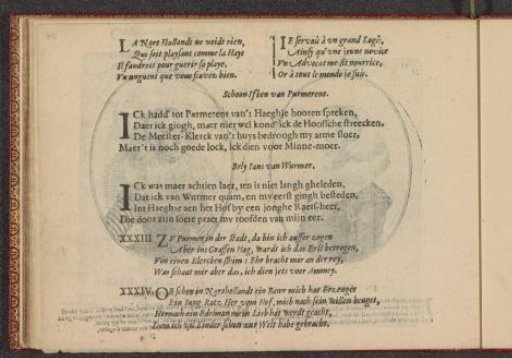 LA Nort Hollandt ne voidt rien,
Qui soit playsant comme la Haye
Il faudroit pour guerir sa playe,
Vn unguent que vous sçavez bien.
IE servois à vn grand Logis,
Ainsy qu'vne jeune novice
Vn Advocat me fit nourrice,
Or à tout le monde je suis.
Schoon Ifien van Purmerent.
ICk hadd' tot Purmerent van't Haeghje hooren spreken,
Daer ick gingh, maer niet wel kond' ick de Hoofsche streecken,
De Meester-Klerck van't huys bedroogh my arme sloer,
Maer 't is noch goede lock, ick dien voor Minne-moer.
Bely Jans van Wurmer.
ICk was maer achtien Iaer, ten is niet langh gheleden,
Dat ick van Wurmer quam, en my eerst gingh besteden,
Int Haeghje aen het Hof by een jonghe Raets-heer,
Die door zijn soete praet my roofden van mijn eer.
XXXIII ZV Purmer in der Stadt, da bin ich ausser zogen
Aber ins Graffen Hag, wardt ich das Erst betrogen,
Von einen Klercken schim: Ehr bracht mir an der rey,
Was schaat mir aber das, ich dien jets voor Ammey.
XXXIV. OB schon in Northollandt ein Bawr mich hat Erzeuget
Ein Jung Ratz Her vom Hof, mich nach sein willen beuget,
Hernach ein Edelman mir in Lieb hat werdt geacht,
Dem ich Kinder schon zur Welt habe gebracht.